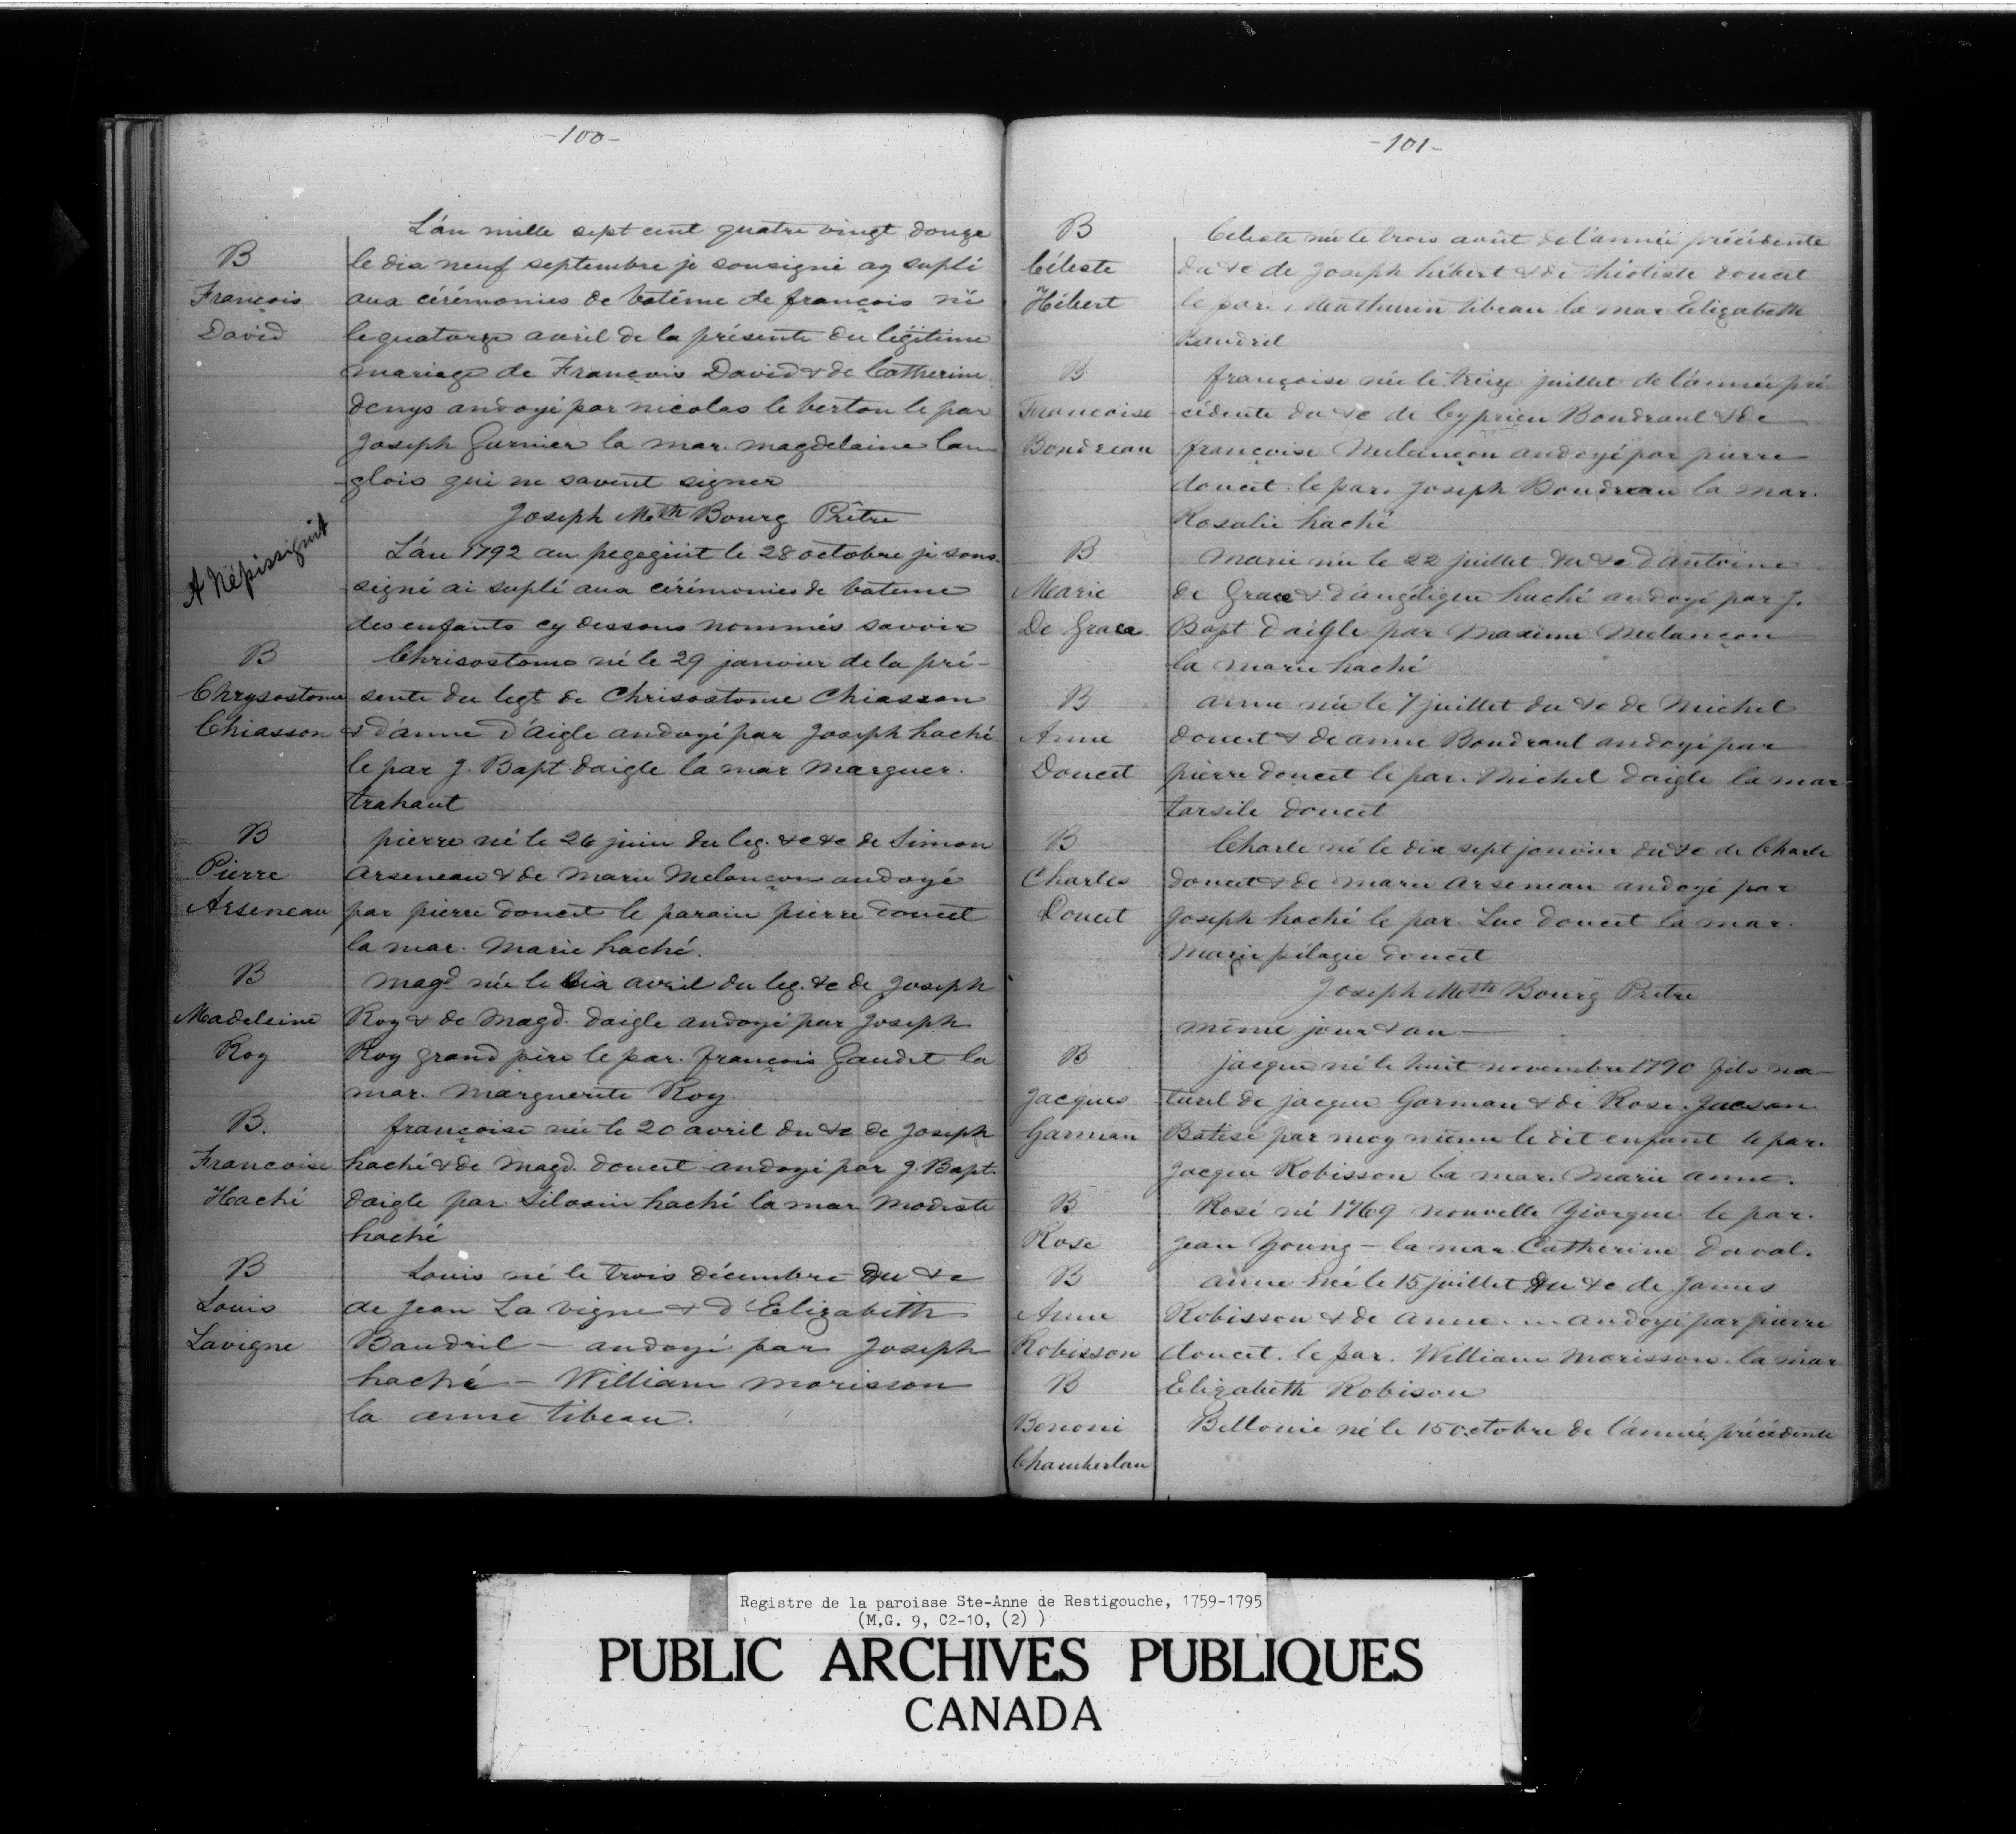 -100-
L'an mille sept cent quatre vingt douze
B le dix neuf septembre je sousigné ay suplé
François aux cérémonies de batême de françois né
David le quatorze avril de la présente du légitime
mariage de François David & de Catherine
denys andoyé par nicolas le berton le par
Joseph Garnier la mar. magdelaine lan
glois qui ne savent signer
Joseph Mtth Bourg Prêtre
A Népissiguit
L'an 1792 au pegegiuit le 28 octobre je sous-
signé ai suplé aux cérémonies de bateme
des enfants cy dessous nommés savoir
B Chrisostome né le 29 janvier de la pré-
Chrysostome sente du legt de Chrisostome Chiasson
Chiasson & d'anne d'aigle andoyé par Joseph haché
le par J. Bapt daigle la mar Marguer.
trahant
B pierre né le 26 juin du leg. &c &c de Simon
Pierre Arseneau & de Marie Melançon andoyé
Arseneau par pierre doucet le parain pierre doucet
la mar. Marie haché.
B magd née le dix avril du leg. &c de Joseph
Madeleine Roy & de Magd. daigle andoyé par Joseph
Roy Roy grand père le par. françois Gaudet la
mar. Marguerite Roy.
B. françoise née le 20 avril du &c de Joseph
Francoise haché & de Magd. doucet andoyé par J. Bapt.
Haché daigle par Silvain haché la mar Modeste
haché
B Louis né le trois décembre du &c
Louis de Jean La vigne & d'Elizabeth
Lavigne Baudril – andoyé par Joseph
haché – William morisson
la anne tibeau.
-101-
B Céleste née le trois août de l'année précédente
Céleste du &c de Joseph hébert & de théotiste doucet
Hébert le par., Mathurin tibeau la mar Elizabeth
Baudril
B françoise née le treize juillet de l'année pré
Francoise cédente du &c de Cyprien Boudraul & de
Boudreau françoise Melançon andoyé par pierre
doucet. le par. Joseph Boudreau la mar.
Rosalie haché
B Marie née le 22 juillet du &c d'antoine
Marie de Grace & d'angélique haché andoyé par J.
De Grace Bapt d'aigle par Maxime Melançon
la marie haché
B anne née le 7 juillet du &c de Michel
Anne doucet & de anne Boudraul andoyé par
Doucet pierre doucet le par. Michel daigle la mar
tarsile doucet
B Charle né le dix sept janvier du &c de Charle
Charles doucet & de marie Arseneau andoyé par
Doucet Joseph haché le par. Luc doucet la mar.
Marie pélagie doucet
Joseph Mtth Bourg Prêtre
même jour & an —
B jacque né le huit novembre 1790 fils na
Jacques turel de jacque Garman & de Rose. Jacson
Garman Batisé par moy même le dit enfant le par.
Jacque Robisson la mar. Marie anne.
B Rosé né 1769 nouvelle Yiorque le par.
Rose Jean Young – la mar. Catherine daval.
B anne née le 15 juillet du &c de James
Anne Robisson & de Anne ... andoyé par pierre
Robisson doucet. le par. William Morisson. la mar
B Elizabeth Robison
Benoni Bellonie né le 15 octobre de l'année précédente
Chamberlan
Registre de la paroisse Ste-Anne de Restigouche, 1759-1795
(M.G. 9, C2-10, (2) )
PUBLIC ARCHIVES PUBLIQUES
CANADA